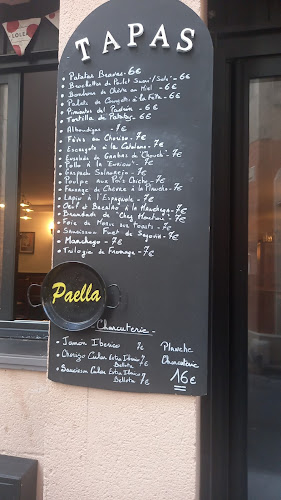 LOLE
TAPAS
• Patatas Bravas - 6€
• Brochettes de Poulet - 6€
• Bonbons de Chèvre au Miel - 6€
• Pimientos del Padrón - 6€
• Tortilla de Patatas - 6€
Albondigas - 7€
• Fèves au Chorizo - 7€
• Escargots à la Catalane - 7€
• Ensalada de Gambas de "Chouch" - 7€
• Gaspacho Salmorejo - 7€
• Poulpe aux Pois Chiche - 7€
• Fromage de Chèvre à la Plancha - 7€
• Lapin à l'Espagnole - 7€
• Brandade de "Chez Mouton" - 7€
• Foie de Morue sur Toasts - 7€
• Saucisson Fuet de Segovia - 7€
• Manchego - 7€
• Trilogie de Fromage - 7€
Paella
Charcuterie -
• Jamón Iberico 7€
• Chorizo Cular Extra Iberico
Bellota 7€
• Saucisson Cular Extra Iberico
Bellota 7€
Planche
Charcuterie
16€